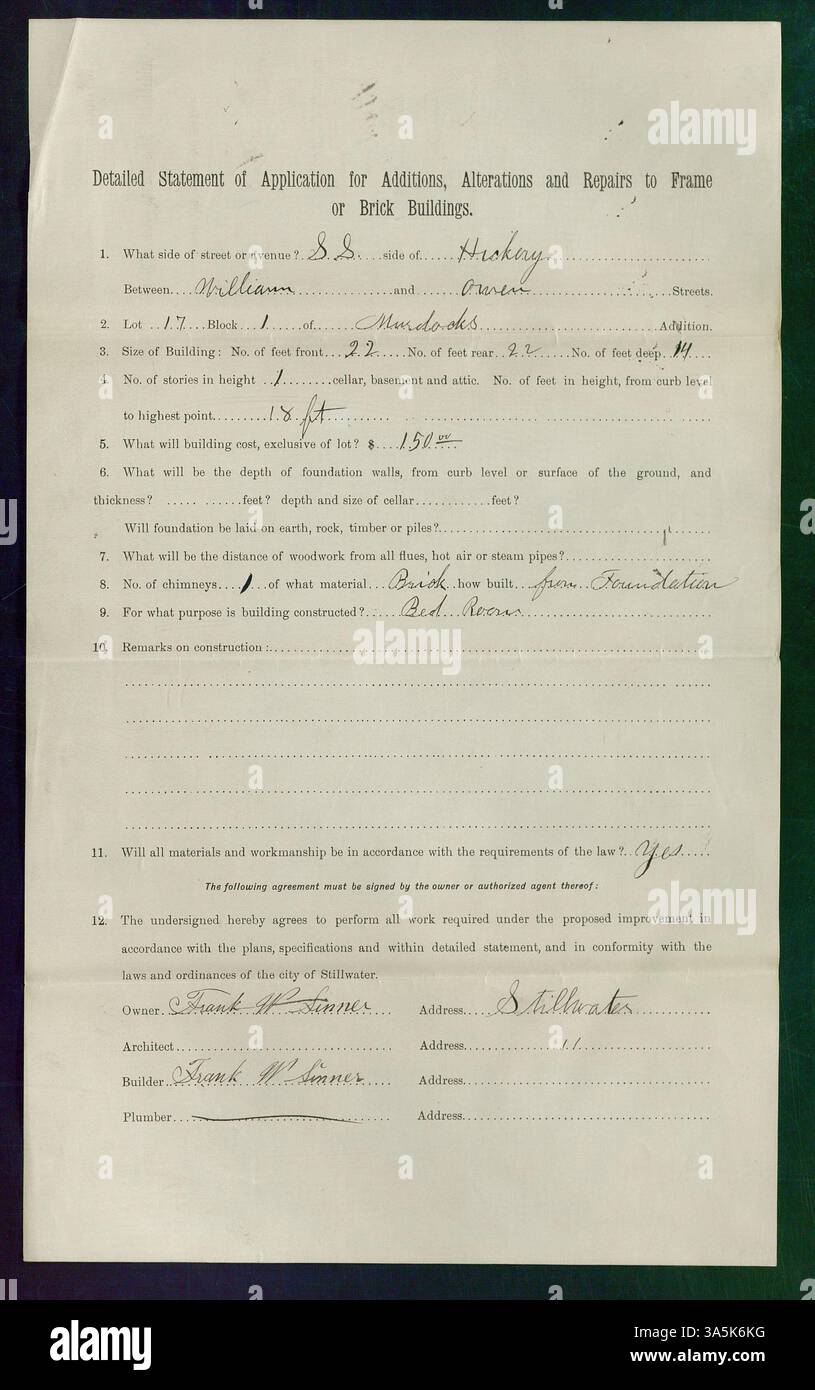 alamy
Detailed Statement of Application for Additions, Alterations and Repairs to Frame
or Brick Buildings.
1. What side of street or avenue? S. S. side of Hickory
Between William and Owen Streets.
2. Lot 17 Block 1 of Murdocks Addition.
3. Size of Building: No. of feet front 22 No. of feet rear 22 No. of feet deep 14
4. No. of stories in height 1 cellar, basement and attic. No. of feet in height, from curb level
to highest point 18 ft
5. What will building cost, exclusive of lot? $ 150 00
6. What will be the depth of foundation walls, from curb level or surface of the ground, and
thickness? feet? depth and size of cellar feet?
Will foundation be laid on earth, rock, timber or piles?
7. What will be the distance of woodwork from all flues, hot air or steam pipes?
8. No. of chimneys 1 of what material Brick how built from Foundation
9. For what purpose is building constructed? Bed Room
10. Remarks on construction:
alamy
11. Will all materials and workmanship be in accordance with the requirements of the law? Yes
The following agreement must be signed by the owner or authorized agent thereof:
12. The undersigned hereby agrees to perform all work required under the proposed improvement in
accordance with the plans, specifications and within detailed statement, and in conformity with the
laws and ordinances of the city of Stillwater.
Owner Frank W Linner Address Stillwater
Architect Address "
Builder Frank W Linner Address
Plumber Address
alamy
Image ID: 3A5K6KG
www.alamy.com